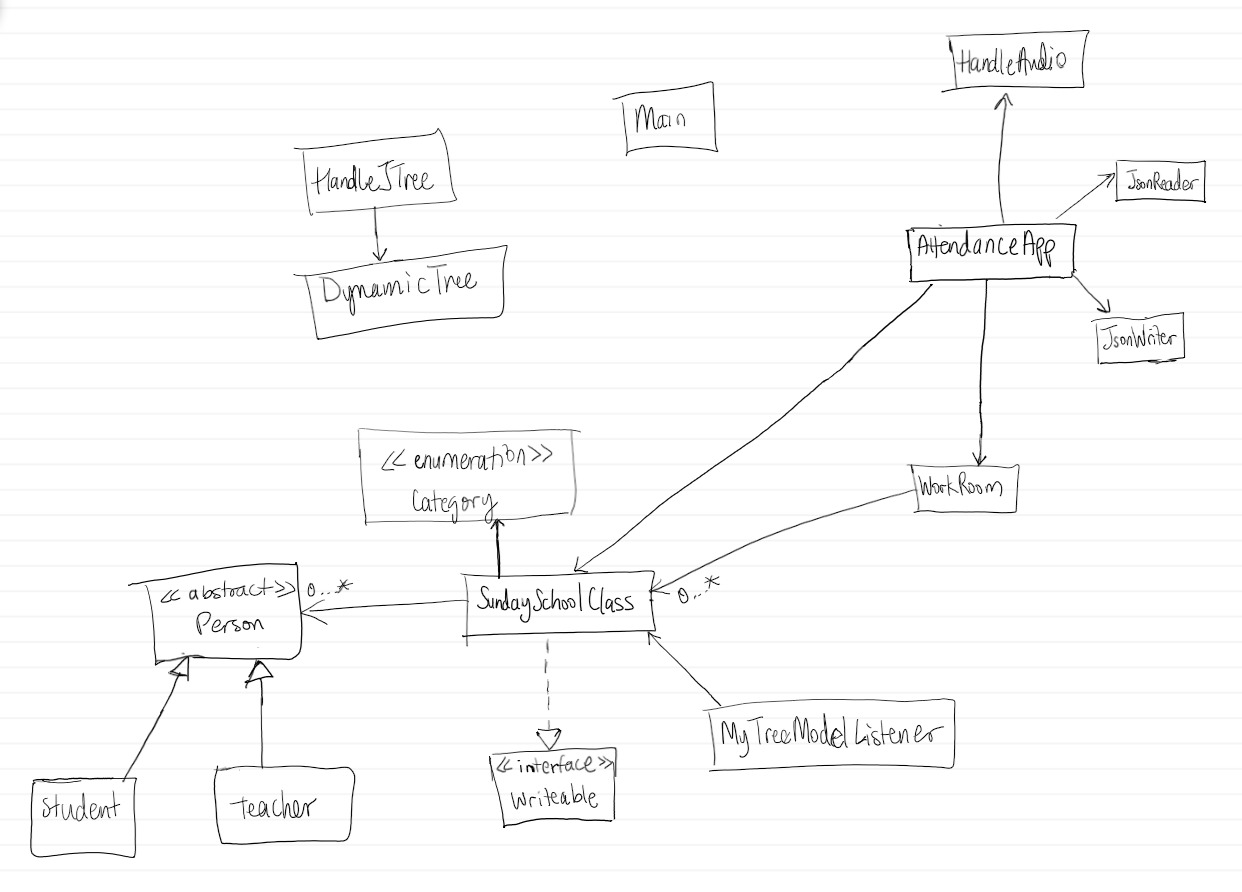 HandleAudio
Main
HandleJTree
JsonReader
AttendanceApp
DynamicTree
JsonWriter
<< enumeration >>
Category
WorkRoom
<< abstract >>
Person
0...*
SundaySchoolClass
0...*
MyTreeModelListener
<< interface >>
Writeable
Student
Teacher